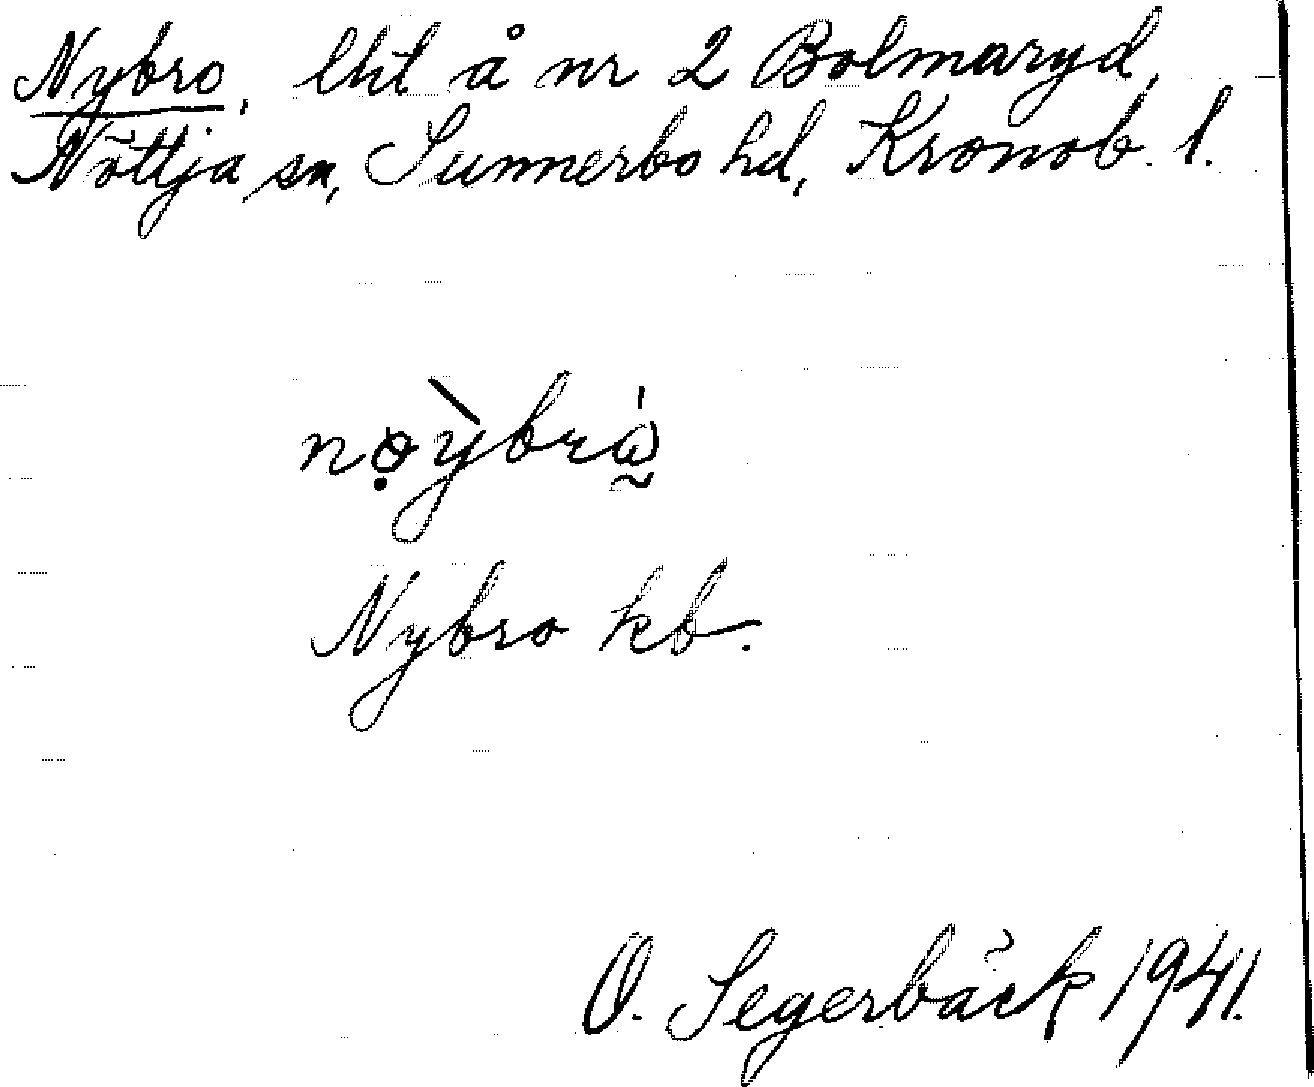 Nybro, lht å nr 2 Bolmaryd,
Nöttja sn, Sunnerbo hd, Kronob. l.
Nybro kb.
O. Segerbäck 1941.